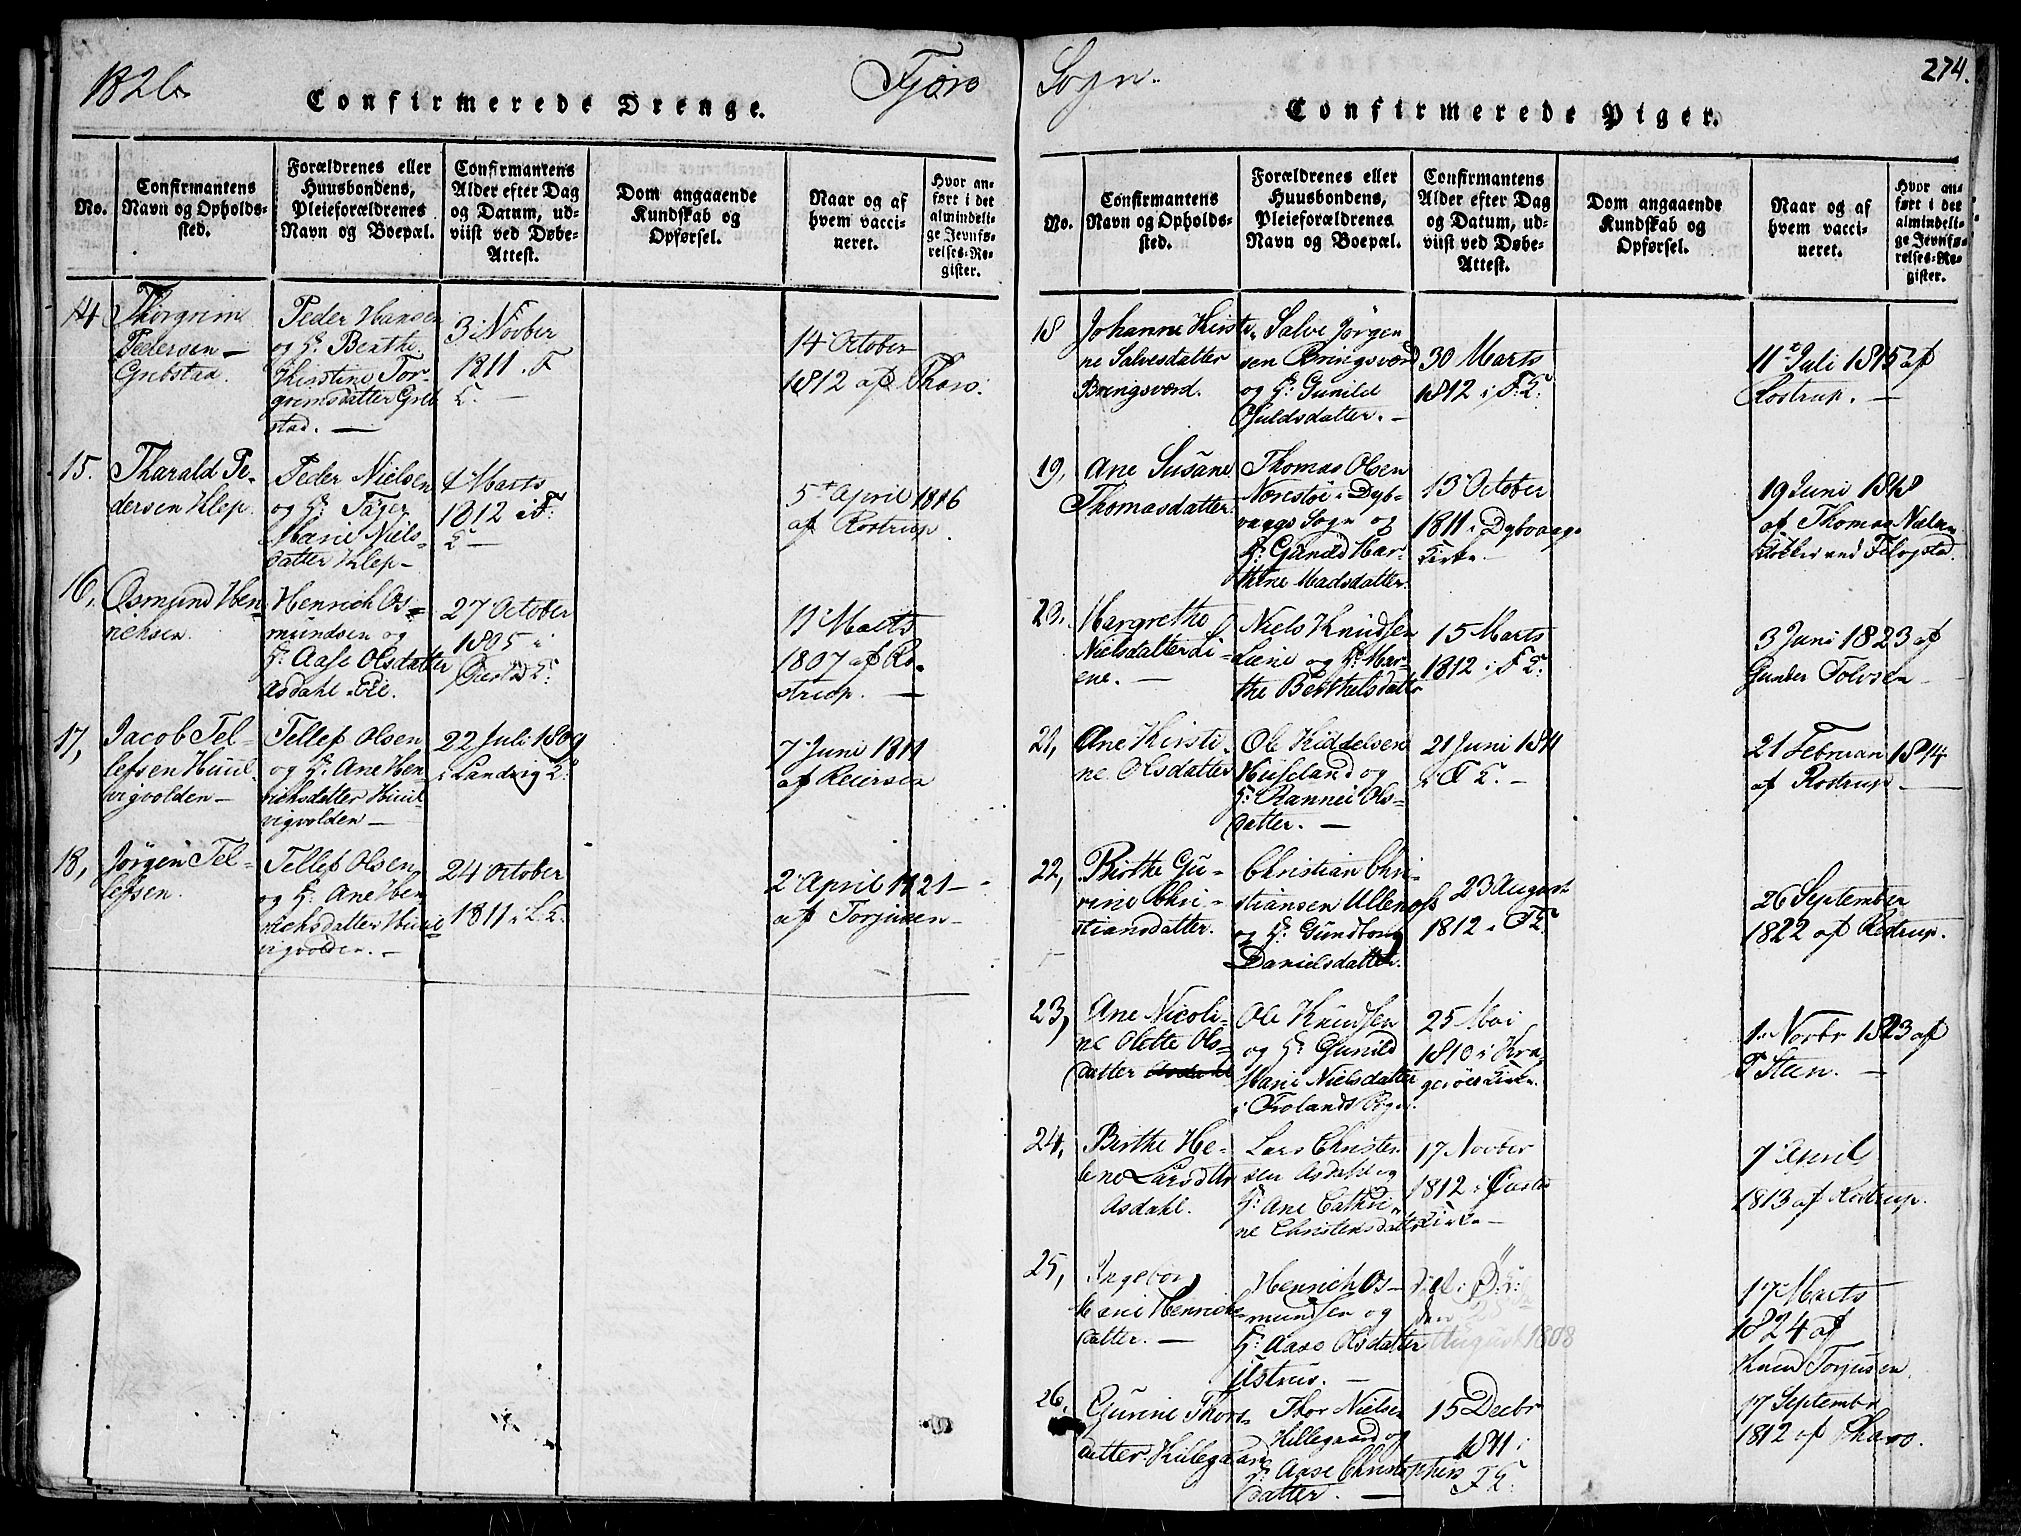 1826.
Fjære
Confirmerede Drenge.
No.
Confirmantens
Navn og Opholds-
sted.
Forældrenes eller
Huusbondens,
Pleieforældrenes
Navn og Boepæl.
Confirmantens
Alder efter Dag
og Datum, ud-
viist ved Døbe-
Attest.
Dom angaaende
Kundskab og
Opførsel.
Naar og af
hvem vacci-
neret.
Hvor an-
ført i det
almindeli-
ge Jevnfø-
relses-Re-
gister.
14
Thorgrim
Pedersen —
Grebstad.
Peder Hansen
og H: Berthe
Kirstine Tor-
grimsdatter Greb
stad. —
3 Novber
1811 i F
K. —
14 October
1812 af Tharo:
15.
Tharald Pe-
dersen Klep.
Peder Nielsen
og H: Tager
Marie Niels-
datter Klep —
4 Marts
1812 i F:
K —
5te April 1816
af Rostrup.
16,
Osmund Hen
richsen.
Henrich Os-
mundsen og
H: Aase Olsdatter
Asdahl Eie.
27 October
1805 i
Øiestad K:
11 Marts
1807 af Ro-
strup. —
17,
Jacob Tel-
lefsen Huul
vigvolden —
Tellef Olsen
og H: Ane Hen
richsdatter Huul
vigvolden —
22 Juli 1809
i Landvig K:
7 Juni 1811
af Reiersen
18,
Jørgen Tel-
lefsen.
Tellef Olsen
og H: Ane Hen
richsdatter Huul
vigvolden. —
24 October
1811 i L. K.
2 April 1821 —
af Torjusen —
Sogn.
274.
Confirmerede Piger.
No.
Confirmantens
Navn og Opholds-
sted.
Forældrenes eller
Huusbondens,
Pleieforældrenes
Navn og Boepæl.
Confirmantens
Alder efter Dag
og Datum, ud-
viist ved Døbe-
Attest.
Dom angaaende
Kundskab og
Opførsel.
Naar og af
hvem vacci-
neret.
Hvor an-
ført i det
almindeli-
ge Jevnfø-
relses-Re-
gister.
18
Johanne Kirsti-
ne Salvesdatter
Bringsværd.
Salve Jørgen
sen Bringsværd
og H: Gunild
Ouldsdatter. —
30 Marts
1812 i F: K
11te Juli 1815 af
Rostrup. —
19,
Ane Susane
Thomasdatter
Thomas Olsen
Narestøe i Dyb-
vaags Sogn og
H: Gunild Mar-
thine Madsdatter
13 October
1811 i Dybvaags
Kirke
19 Juni 1818
af Thomas Nielsen
Klokker ved Flagstad
20.
Margrethe
Nielsdatter Li-
ene. —
Niels Knudsen
Liene og H: Mar-
the Berthelsdatter
15 Marts
1812 i F K:
3 Juni 1823 af
Gunder Tolvsen —
21,
Ane Kirsti-
ne Olsdatter
Ole Kiddelsen
Huseland og
H: Rannei Ols-
datter. —
21 Juni 1811
i F K. —
21 Februar 1814
af Rostrup —
22,
Birthe Gu-
rine Chri-
stiansdatter.
Christian Chri-
stiansen Ullenæs
og H: Gundborg
Danielsdatter.
23 August
1812 i F K.
26 September
1822 af Rostrup.
23,
Ane Nicoli-
ne Olette Ols-
datter
Ole Knudsen
og H: Gunild
Marie Nielsdatter
i Frolands Sogn.
25 Mai
1810 i Kra-
gerøes Kirke.
1 Novbr 1823 af
P Steen. —
24,
Birthe He-
lene Larsdtr
Asdahl.
Lars Christen
sen Asdahl og
H: Ane Cathri-
ne Christensdatter
17 Novber
1812 i Øiestad
Kirke —
7 April
1813 af Rostrup.
25,
Ingeborg
Marie Henrichs
datter. —
Henrich Os-
mundsen og
H: Aase Olsdatter
den 28
August 1808
17 Marts
1824 af
Knud Torjusen.
26.
Gurine Thors
datter Hillegaard
Thor Nielsen
Hillegaard og
H: Aase Christophers
datter. —
15 Decbr
1811 i
F K:
17 Septembr
1812 af Tharo.